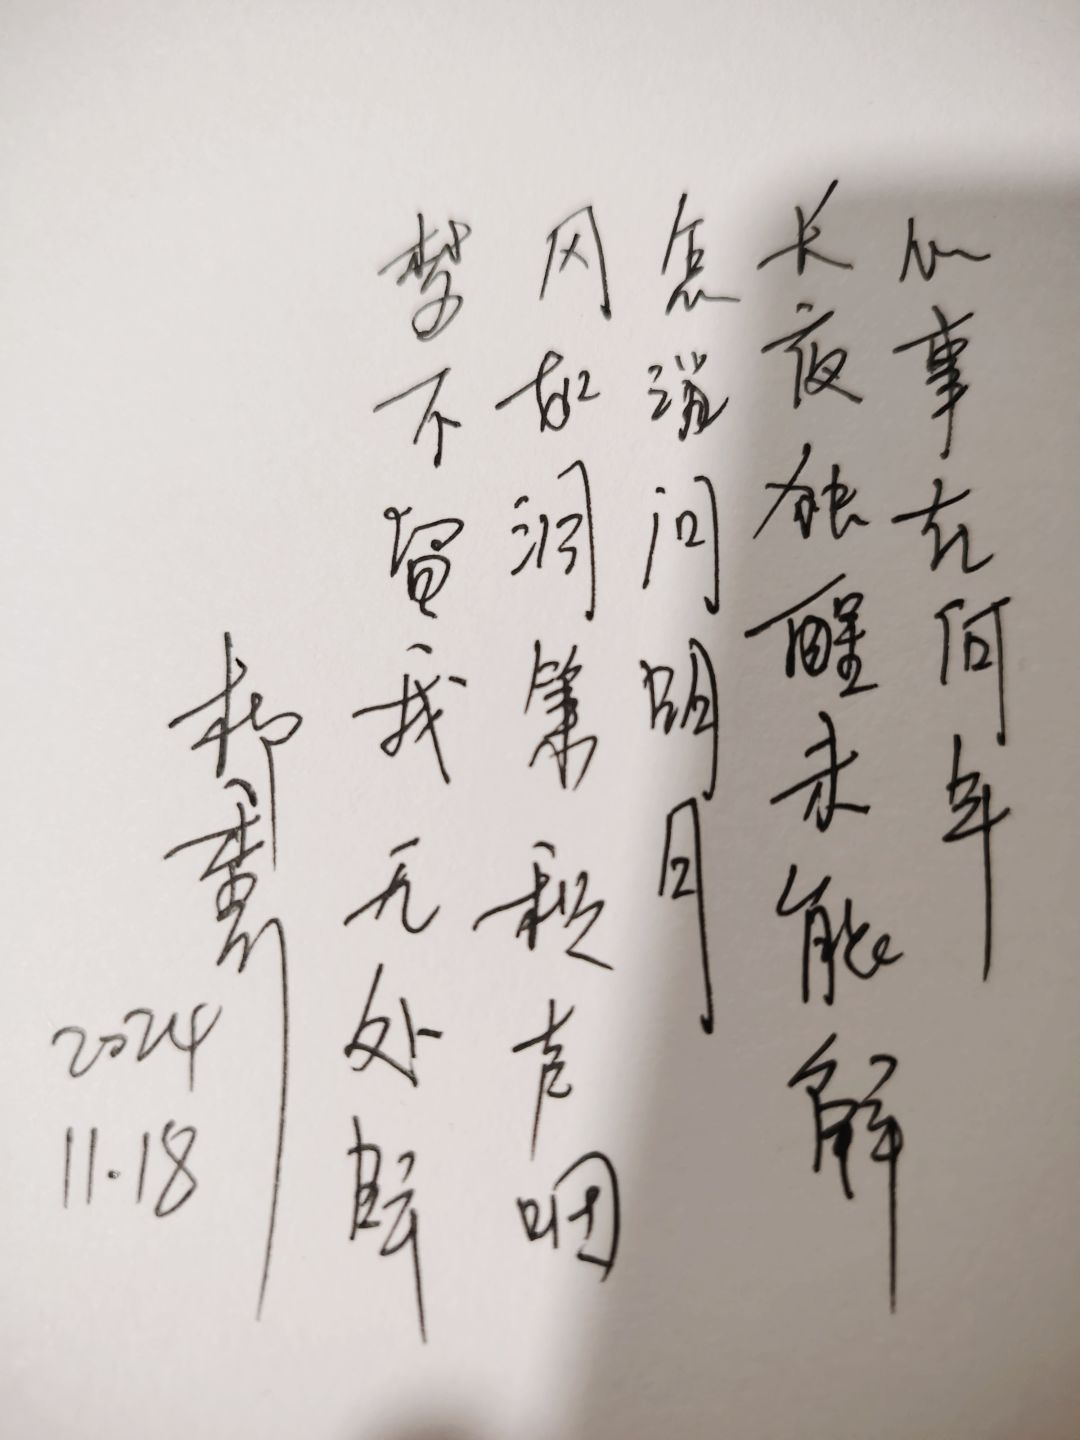 心事在何年
长夜独醒未能解
怎避问明月
风如洞箫和声咽
梦不留我无处眠
柳
2024
11.18